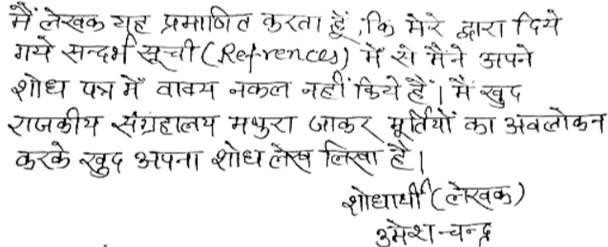 मैं लेखक यह प्रमाणित करता हूँ, कि मेरे द्वारा दिये
गये सन्दर्भ सूची (Refrences) में से मैंने अपने
शोध पत्र में वाक्य नकल नहीं किये हैं। मैं खुद
राजकीय संग्रहालय मथुरा जाकर मूर्तियों का अवलोकन
करके खुद अपना शोध लेख लिखा है।
शोधार्थी (लेखक)
उमेश चन्द्र